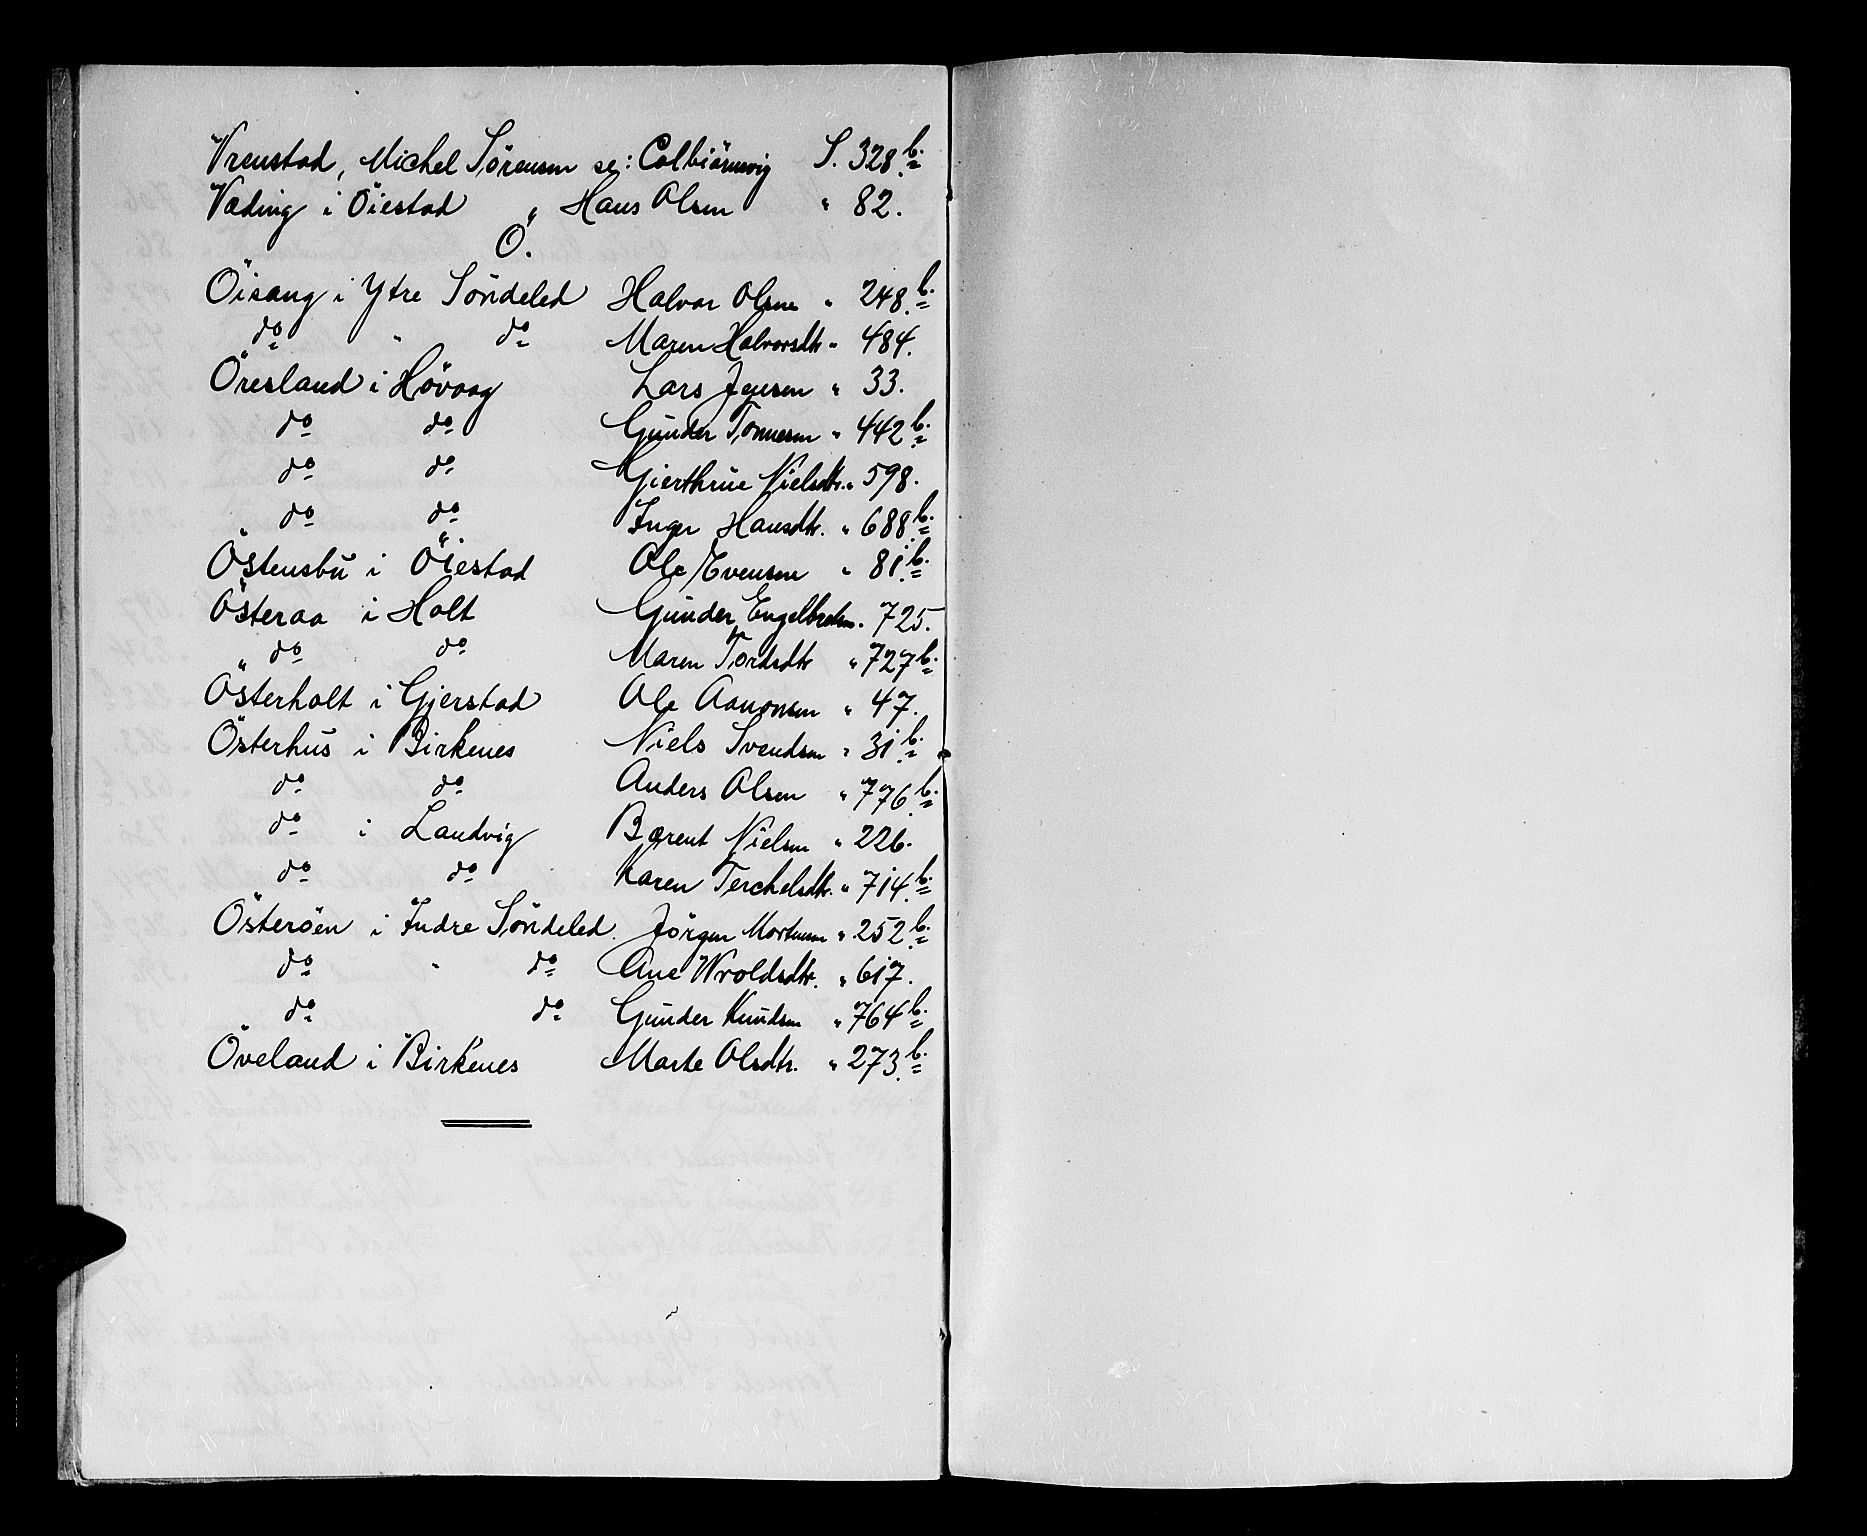 Vrenstad, Michel Sörensen se: Colbiörnsvig S. 328 b.
Væding i Öiestad Hans Olsen " 82.
Ö.
Öisang i Ytre Söndeled Halvor Olsen " 248 b.
do " do Maren Halvorsdtr " 484.
Öresland i Hövaag Lars Jensen " 33.
do do Gunder Tönnesen " 442 b.
do do Gierthrue Nielsdtr. " 598.
do do Inger Hansdtr. " 688 b.
Östensbu i Öiestad Ole Evensen " 81 b.
Österaa i Holt Gunder Engelbretsn. 725.
do do Maren Tordsdtr " 727 b.
Österholt i Gjerstad Ole Aanonsen " 47.
Österhus i Birkenes Niels Svendsen " 31 b.
do do Anders Olsen " 776 b.
do i Landvig Bærent Nielsen " 226.
do do Karen Terchelsdtr. " 714 b.
Österöen i Indre Söndeled Jörgen Mortensen " 252 b.
do " do Ane Wroldsdtr. " 617.
do do Gunder Knudsen " 764 b.
Öveland i Birkenes Marte Olsdtr. " 273 b.